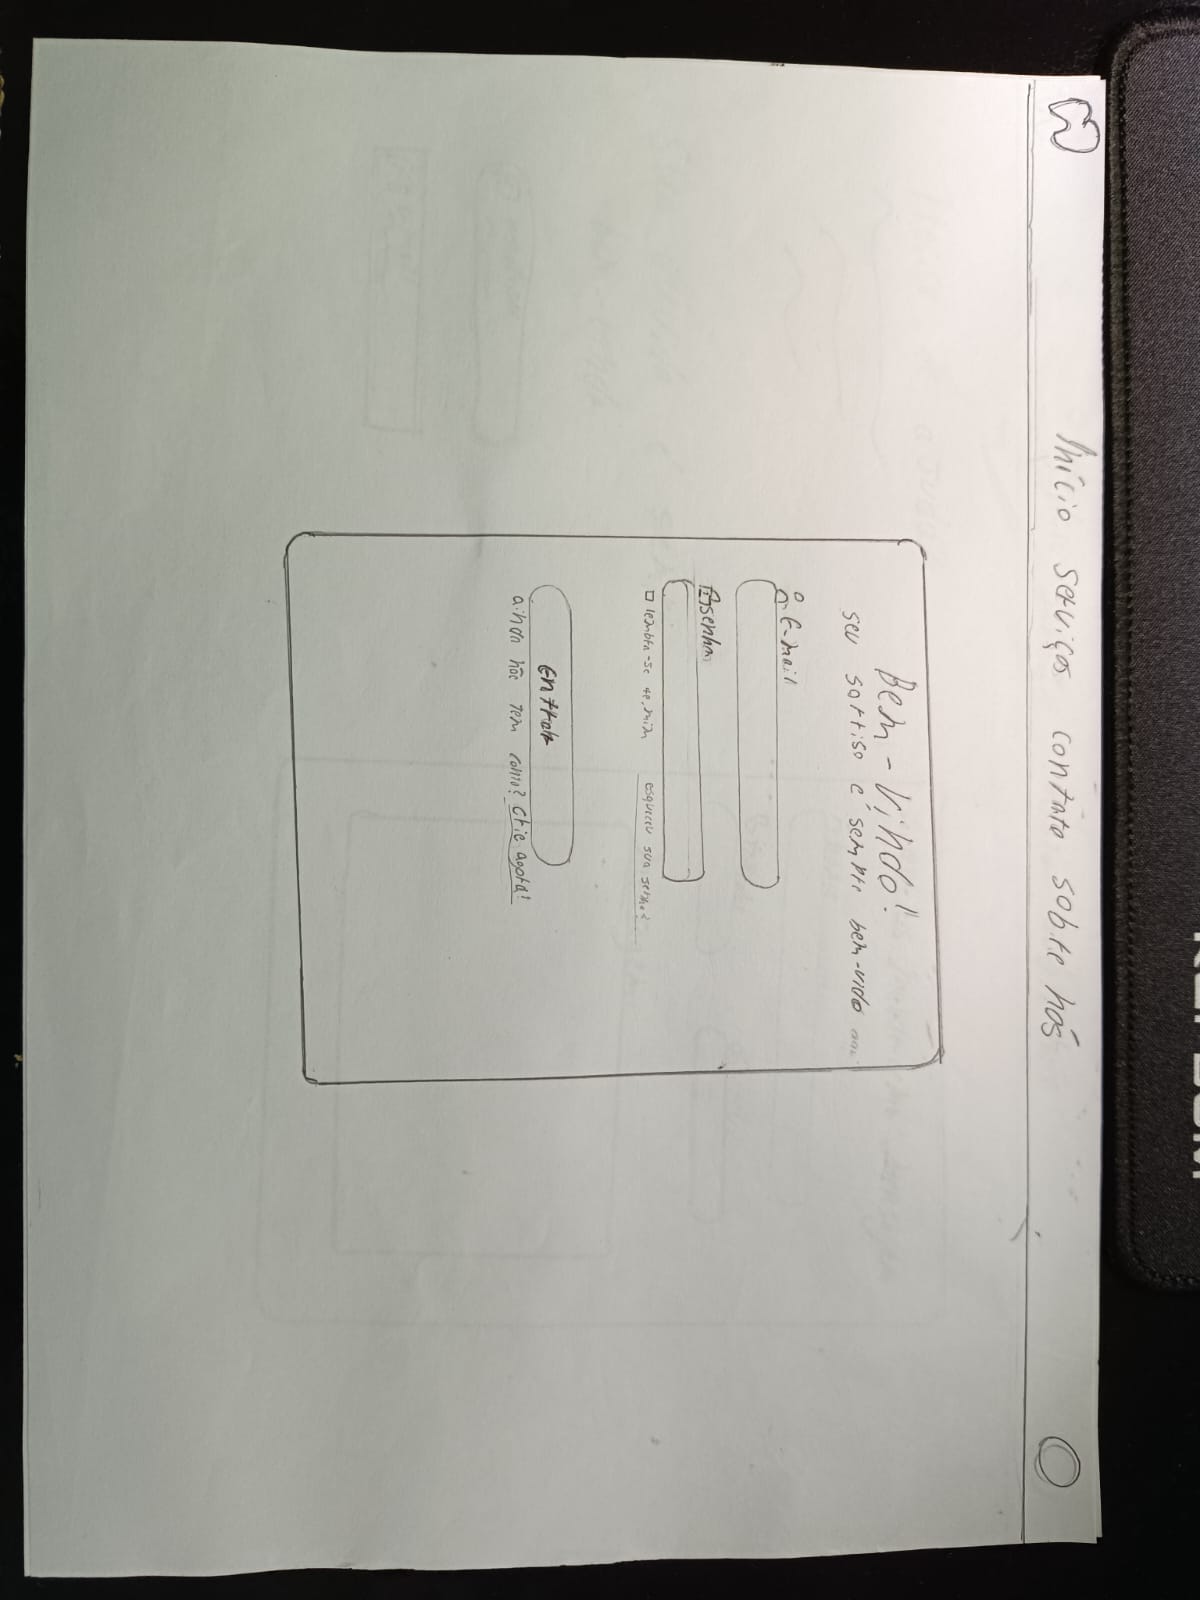 Início serviços contato sobre nós
Bem-Vindo!
seu sorriso é sempre bem-vido
E-mail
senha
lembra-se de mim esqueceu sua senha?
Entrar
ainda não tem conta? Crie agora!